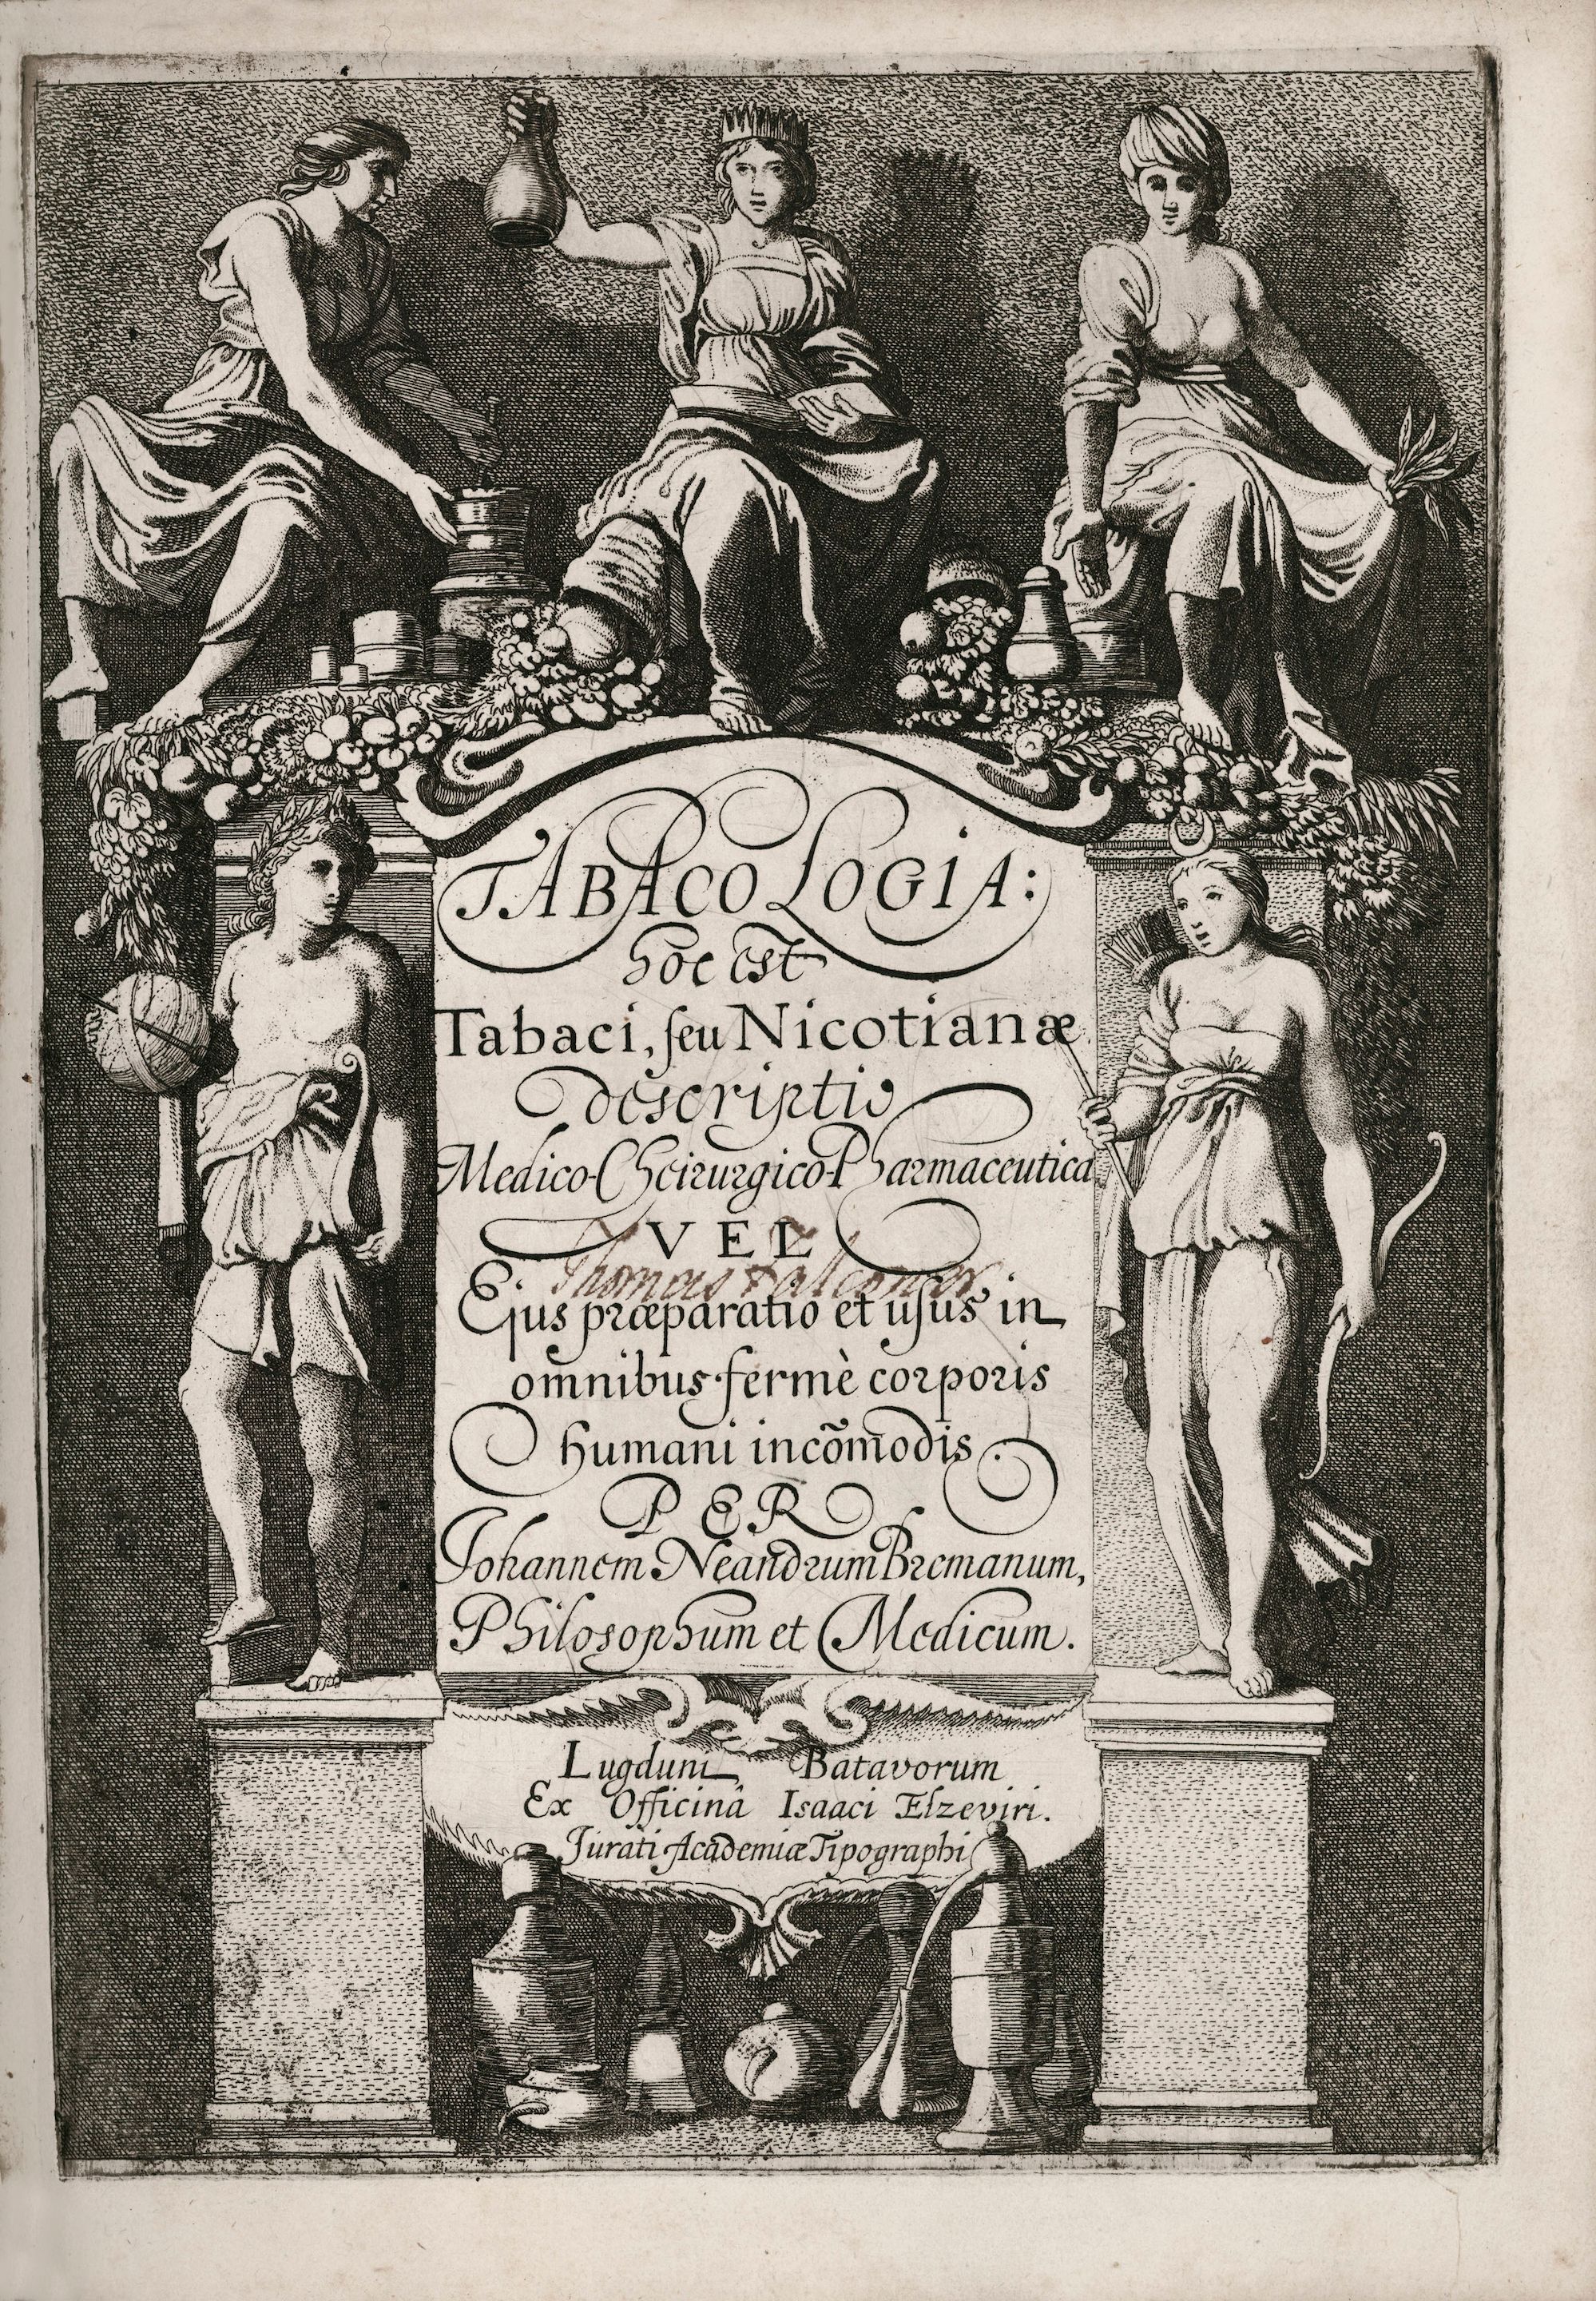 TABACOLOGIA:
hoc est
Tabaci, ſeu Nicotianæ
descriptio
Medico-Cheirurgico-Pharmaceutica
VEL
Thomas Falconer
Ejus præparatio et uſus in
omnibus fermè corporis
humani incõmodis.
PER
Johannem Neandrum Bremanum,
Philosophum et Medicum.
Lugduni Batavorum
Ex Officinâ Isaaci Elzeviri.
Jurati Academiæ Tipographi